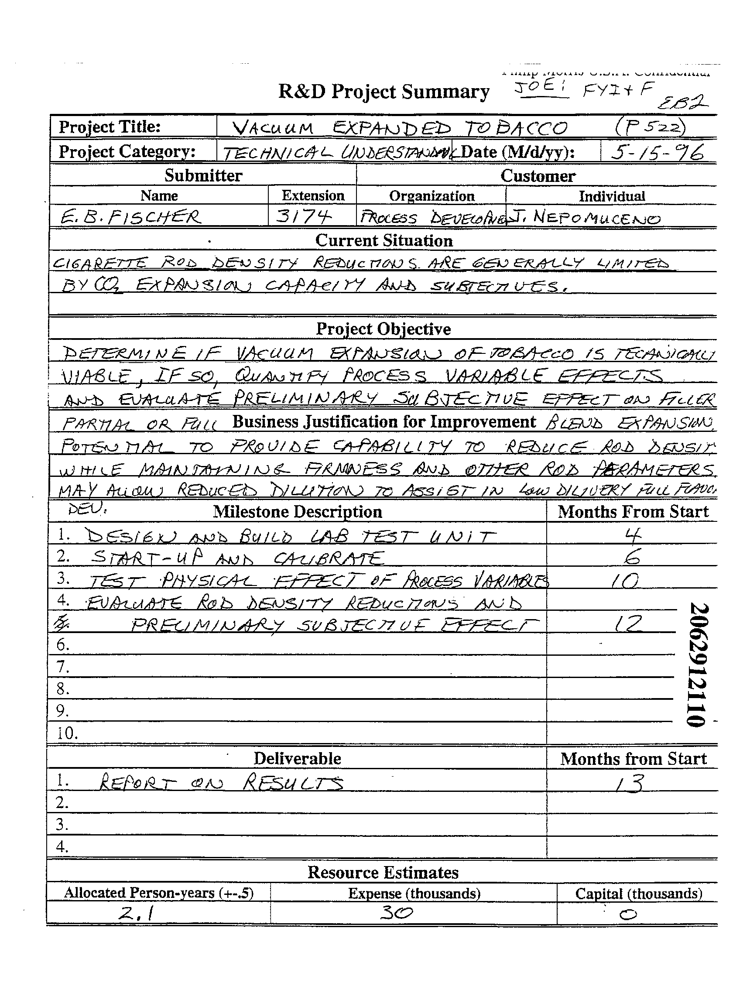 Philip Morris U.S.A. Confidential
R&D Project Summary JOE: FYI+F
EB2
Project Title: VACUUM EXPANDED TOBACCO (P522)
Project Category: TECHNICAL UNDERSTANDING Date (M/d/yy): 5-15-96
Submitter Customer
Name Extension Organization Individual
E.B. FISCHER 3174 PROCESS DEVELOPMENT J. NEPOMUCENO
Current Situation
CIGARETTE ROD DENSITY REDUCTIONS ARE GENERALLY LIMITED
BY CO2 EXPANSION CAPACITY AND SUBJECTIVES.
Project Objective
DETERMINE IF VACUUM EXPANSION OF TOBACCO IS TECHNICALLY
VIABLE, IF SO, QUANTIFY PROCESS VARIABLE EFFECTS
AND EVALUATE PRELIMINARY SUBJECTIVE EFFECT ON FILLER
PARTIAL OR FULL Business Justification for Improvement BLEND EXPANSION.
POTENTIAL TO PROVIDE CAPABILITY TO REDUCE ROD DENSIT
WHILE MAINTAINING FIRMNESS AND OTHER ROD PARAMETERS.
MAY ALLOW REDUCED DILUTION TO ASSIST IN LOW DILIVERY FULL FLAVOR
DEV. Milestone Description Months From Start
1. DESIGN AND BUILD LAB TEST UNIT 4
2. START-UP AND CALIBRATE 6
3. TEST PHYSICAL EFFECT OF PROCESS VARIABLES 10
4. EVALUATE ROD DENSITY REDUCTIONS AND
5. PRELIMINARY SUBJECTIVE EFFECT 12
6.
7.
8.
9.
10.
2062912110
Deliverable Months from Start
1. REPORT ON RESULTS 13
2.
3.
4.
Resource Estimates
Allocated Person-years (+-.5) Expense (thousands) Capital (thousands)
2.1 30 0